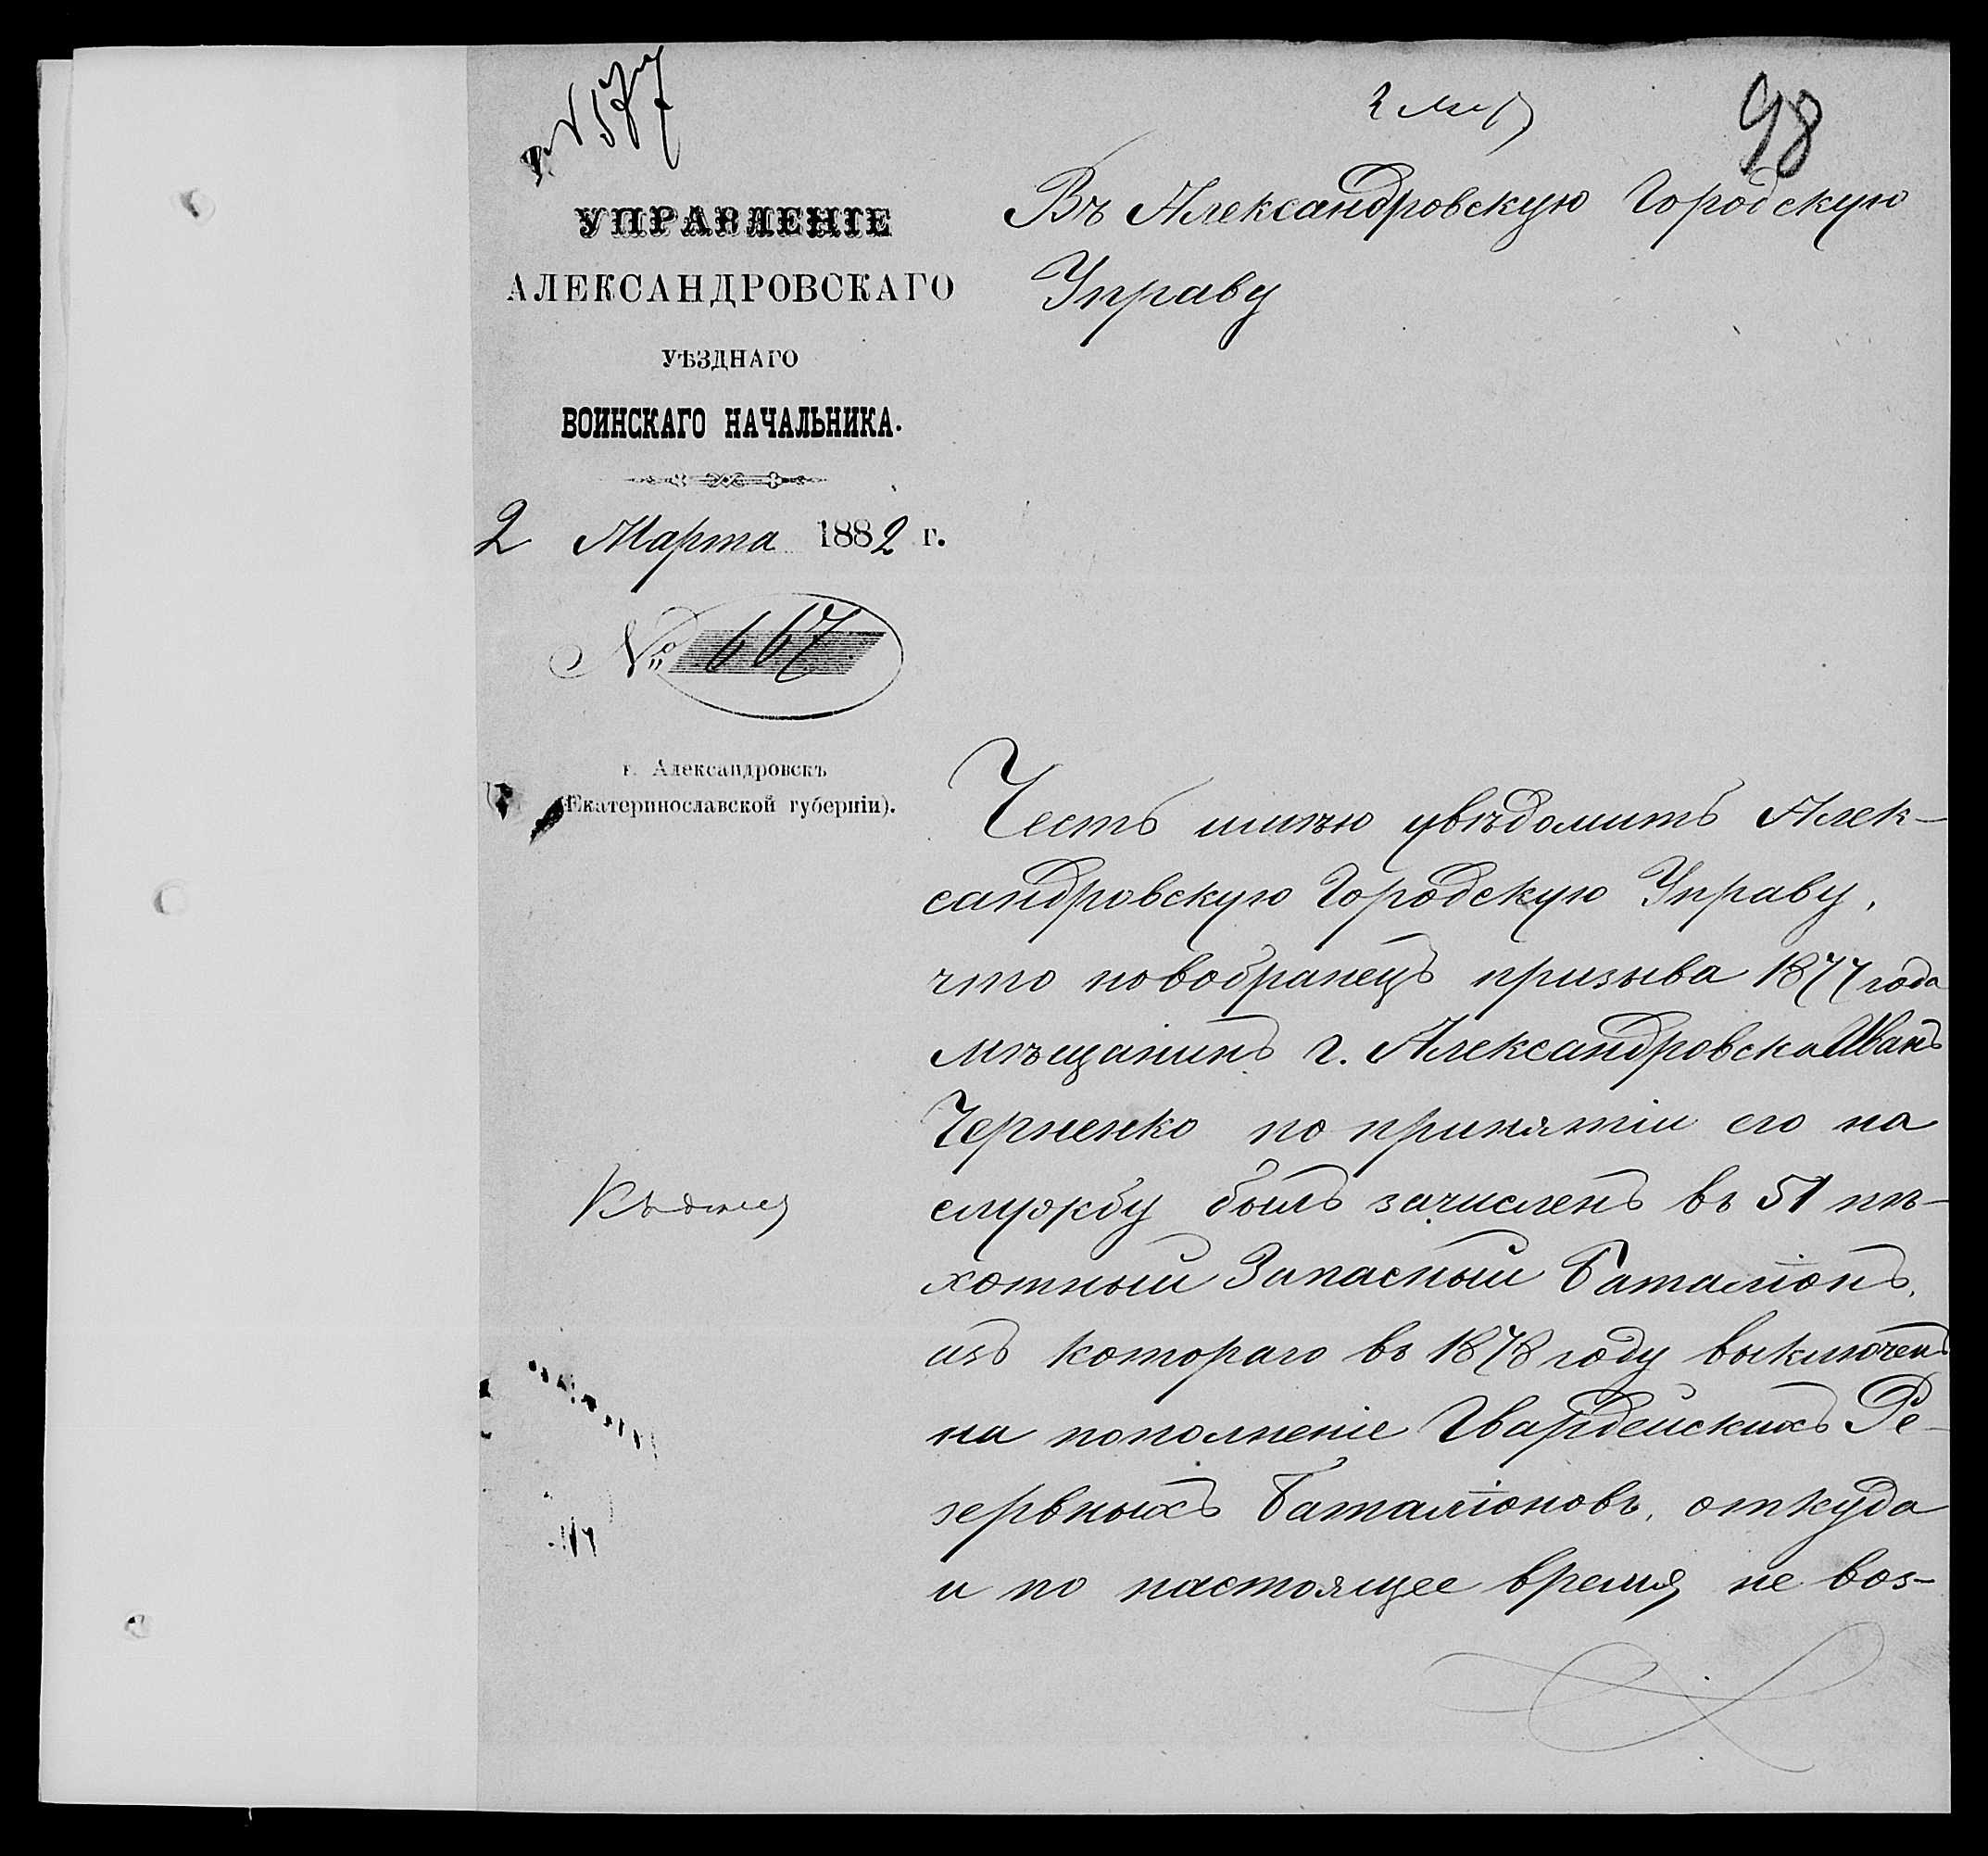 № 577
2 Мар
98
УПРАВЛЕНІЕ
АЛЕКСАНДРОВСКАГО
УѢЗДНАГО
ВОИНСКАГО НАЧАЛЬНИКА.
2 Марта 1882 г.
№ 667
г. Александровскъ
(Екатеринославской губерніи).
Въ Александровскую Городскую
Управу
Честь имѣю увѣдомить Алек-
сандровскую Городскую Управу,
что новобранецъ призыва 1877 года
мѣщанинъ г. Александровска Иванъ
Черненко по принятіи его на
службу былъ зачисленъ въ 51 пѣ-
хотный Запасный Баталіонъ,
изъ котораго въ 1878 году выключенъ
на пополненіе Гвардейскихъ Ре-
зервныхъ Баталіоновъ, откуда
и по настоящее время не воз-
Къ дѣлу